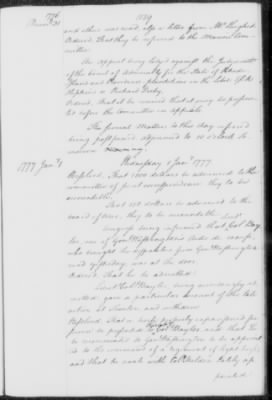 1776
Decem.r 31
1779
and others was read also a letter from
Ordered That they be referred to the Marine Com-
mittee.
An appeal being lodged against the Judgments
of the court of Admiralty for the State of Rhode
Island and Providence plantations in the Libel
Hopkins vs Richard Derby
Ordered That all be moved that it may be
before the Committee on appeals
The several Matters to this day referred
being postponed adjourned to 10 o'Clock to-
morrow
1777 Jan.y 1
Wednesday 1 Jan.y 1777.
Resolved, That 1000 dollars be advanced to the
committee of secret correspondence they to be
accountable.
That 500 dollars be advanced to the
board of war, they to be accountable
Congress being informed that Col.o Bay-
lor, one of Gen.l Washington's Aids de camp
who brought the from Gen.l Washington
was at the door
Ordered That he be admitted.
Lieut. Col.o Baylor being accordingly ad-
mitted gave a particular account of the late
action at Trenton and withdrew
Resolved That a horse properly caparisoned for
service be presented to Lieut. Col.o Baylor, and that he
be recommended to Gen.l Washington to be appoint-
ed to the command of a regiment of light horse
and that he rank with Col.o Sheldon lately ap-
pointed